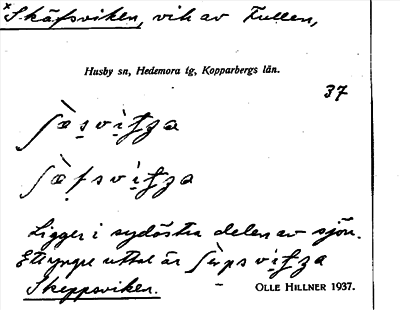 *Skäfsviken, vik av Fullen,
Husby sn, Hedemora tg, Kopparbergs län.
37
Ligger i sydöstra delen av sjön.
Ett yngre uttal är
Skeppsviken.
OLLE HILLNER 1937.